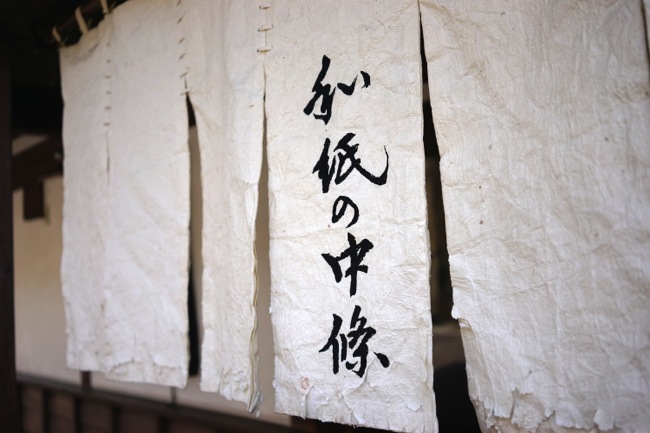 和紙の中條